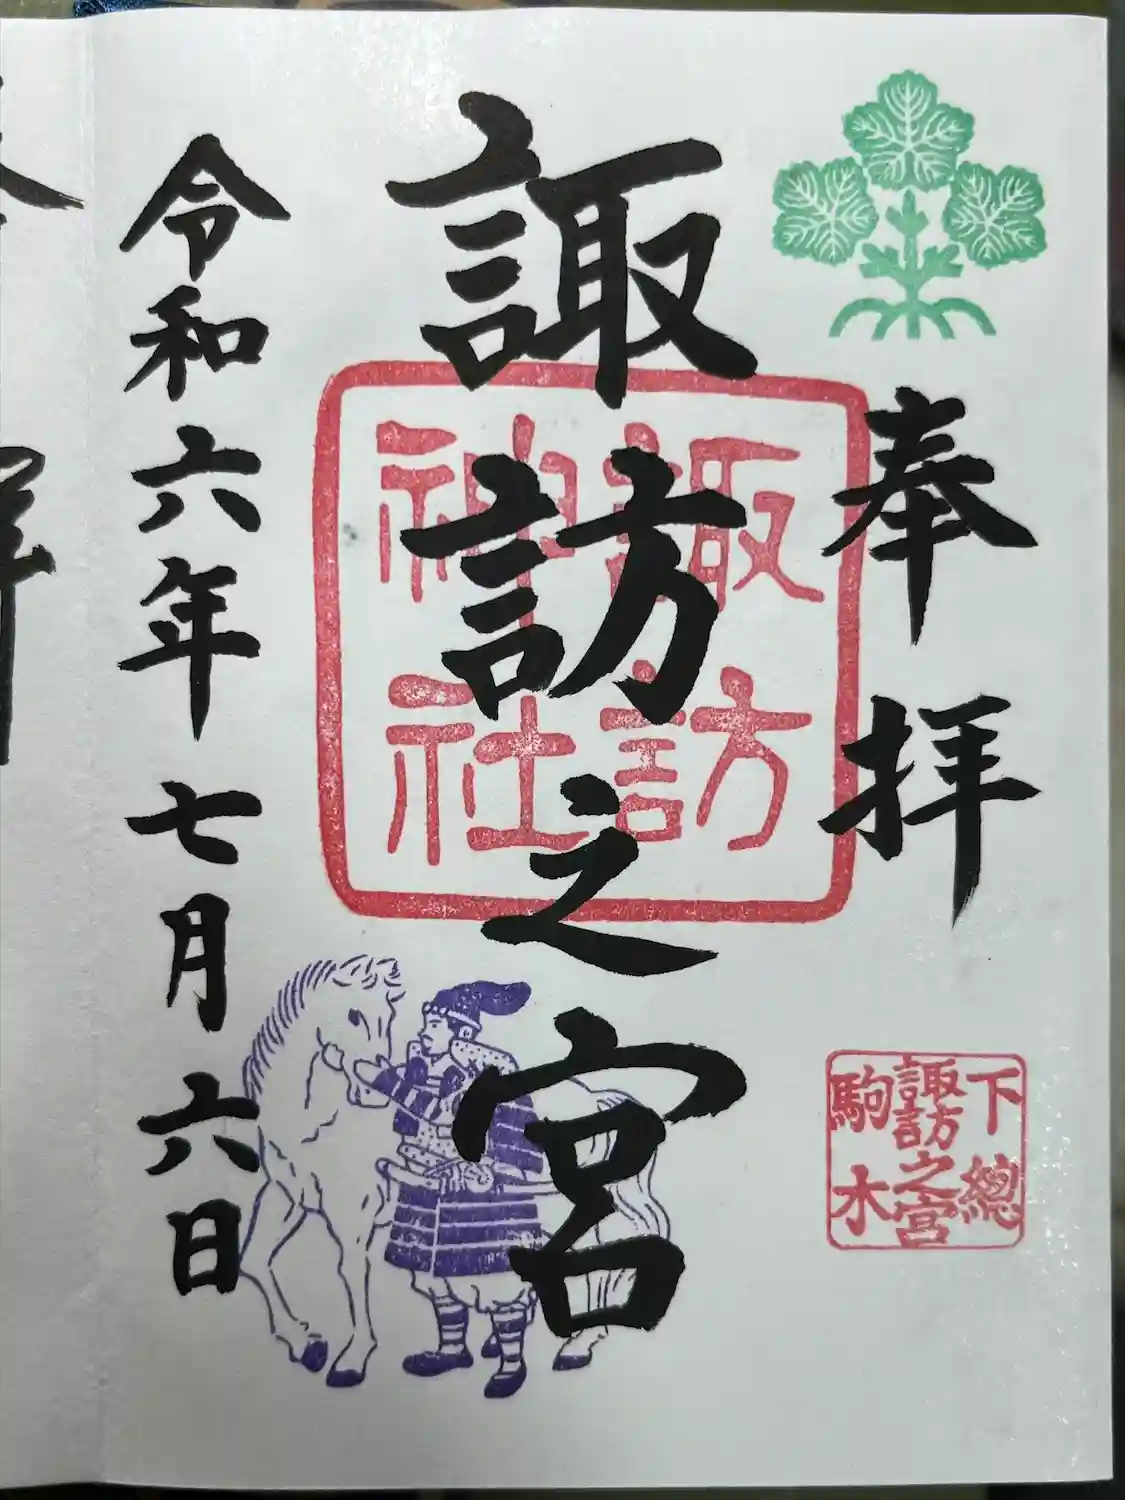 奉拝
下總
諏訪之宮
駒木
諏訪之宮
諏訪
神社
令和六年七月六日
拝